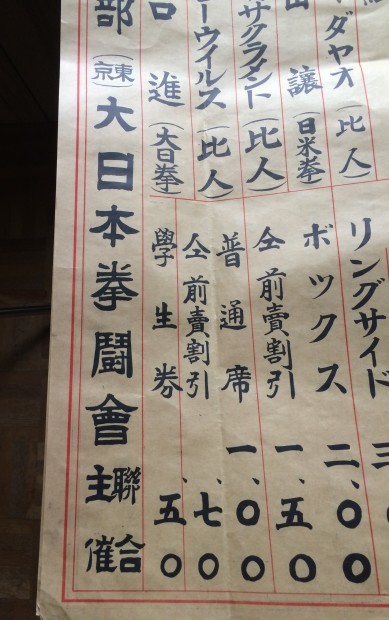 ダヤオ（比人）
讓（日米拳）
サクラメント（比人）
ーウイルス（比人）
口進（大日拳）
部（東京）大日本拳闘會聯合主催
リングサイド 三
ボックス 二、〇〇
仝前賣割引 一、五〇
普通席 一、〇〇
仝前賣割引 、七〇
學生券 、五〇